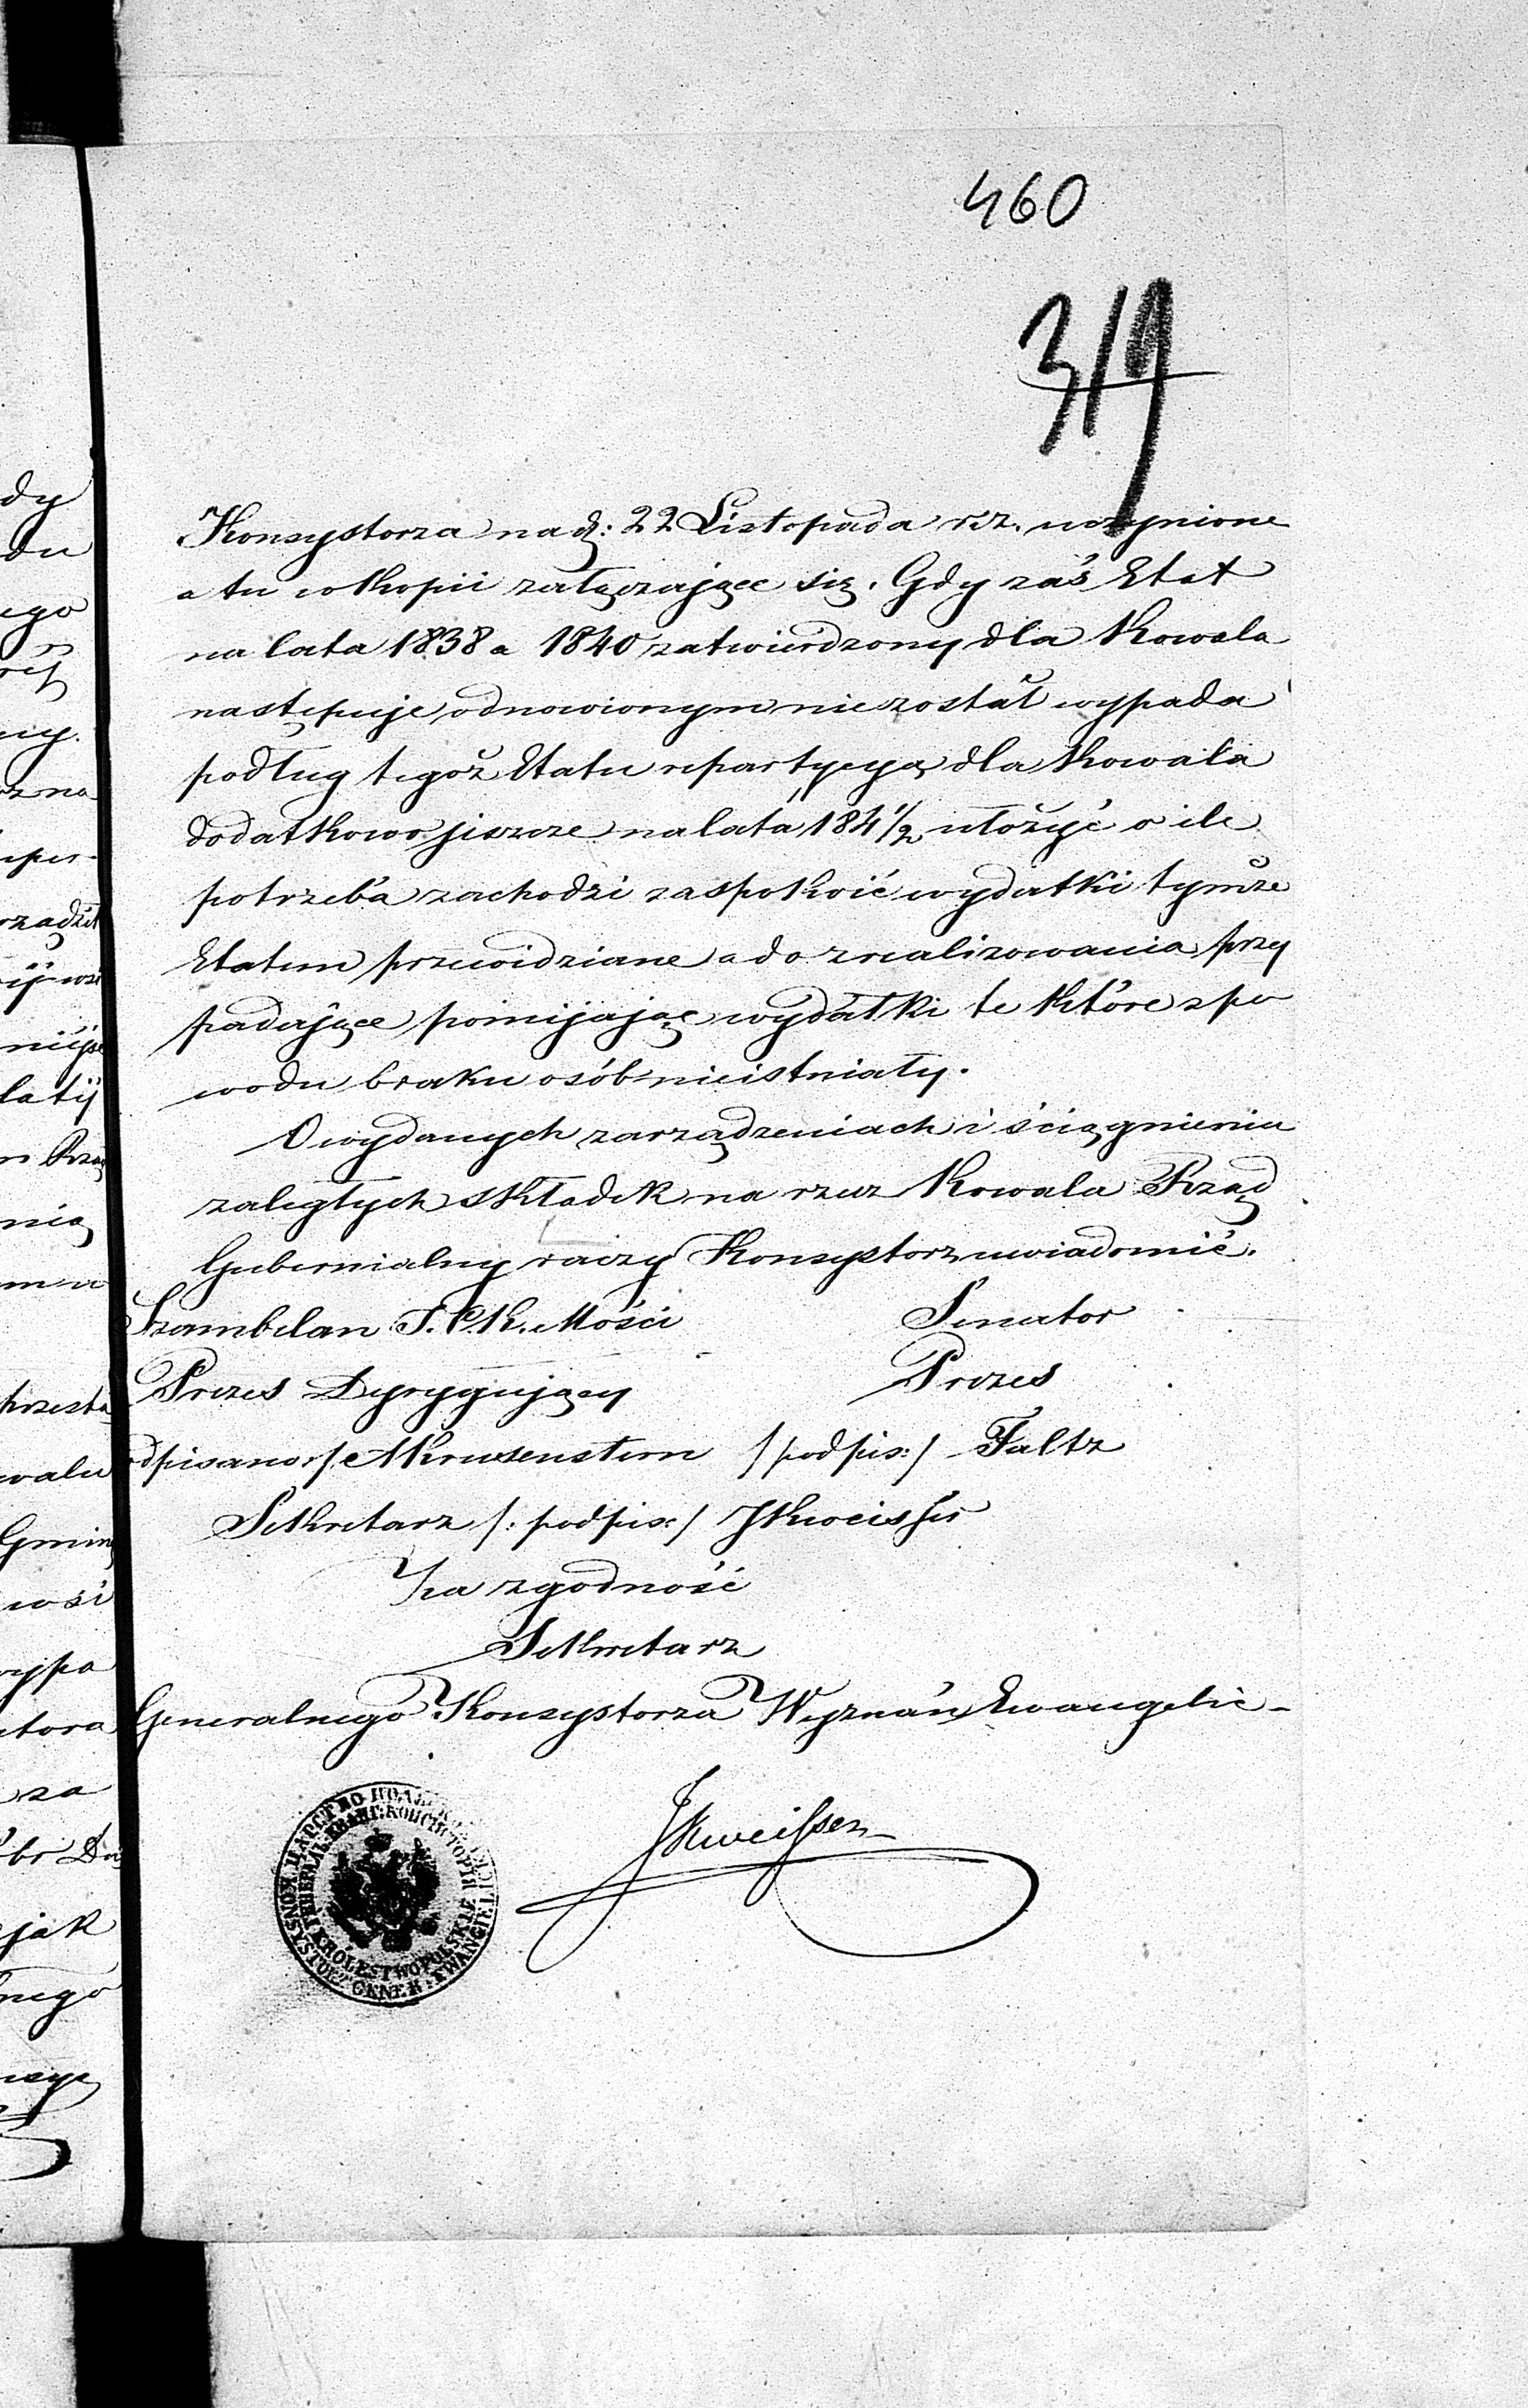 460
319
Konsystorza na d: 22 Listopada r.z. uczynione
a tu w kopii załączające się. Gdy zaś Etat
na lata 1838 a 1840 zatwierdzony dla Kowala
następuje odnowionym nie został wypada
podług tegoż Etatu repartycyą dla Kowala
dodatkowo jeszcze na lata 184 1/2 ułożyć o ile
potrzeba zachodzi zaspokoić wydatki tymże
Etatem przewidziane a do zrealizowania przy
padające pomijając wydatki te które z po
wodu braku osób nieistniały.
O wydanych zarządzeniach i ściągnieniu
zaległych składek na rzecz Kowala Rząd
Gubernialny raczy Konsystorz uwiadomić.
Szambelan J.C.K. Mości Senator
Prezes Dyrygujący Prezes
dpisano / Mkrusenstern / podpis: / Faltz
Sekretarz /: podpis: / JKweisser
Za zgodność
Sekretarz
Generalnego Konsystorza Wyznań Ewangelic-
JKweisser